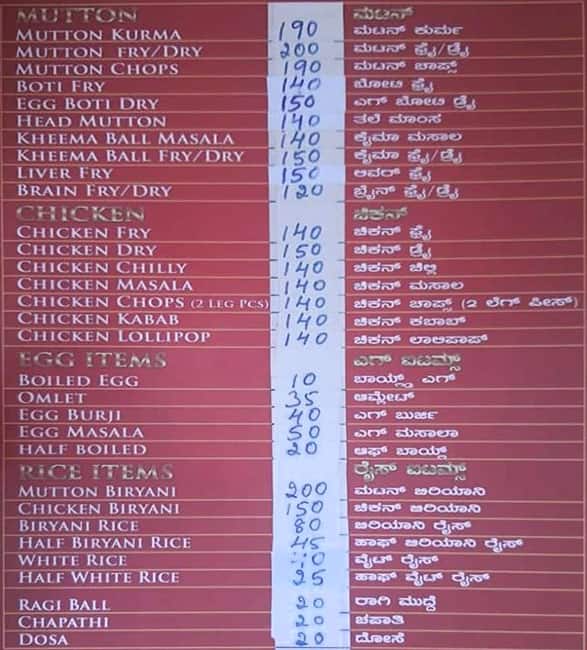 MUTTON ಮಟನ್
MUTTON KURMA 190 ಮಟನ್ ಕುರ್ಮ
MUTTON FRY/DRY 200 ಮಟನ್ ಫ್ರೈ/ಡ್ರೈ
MUTTON CHOPS 190 ಮಟನ್ ಚಾಪ್ಸ್
BOTI FRY 140 ಬೋಟಿ ಫ್ರೈ
EGG BOTI DRY 150 ಎಗ್ ಬೋಟಿ ಡ್ರೈ
HEAD MUTTON 140 ತಲೆ ಮಾಂಸ
KHEEMA BALL MASALA 140 ಕೈಮಾ ಮಸಾಲ
KHEEMA BALL FRY/DRY 150 ಕೈಮಾ ಫ್ರೈ/ಡ್ರೈ
LIVER FRY 150 ಲಿವರ್ ಫ್ರೈ
BRAIN FRY/DRY 120 ಬ್ರೈನ್ ಫ್ರೈ/ಡ್ರೈ
CHICKEN ಚಿಕನ್
CHICKEN FRY 140 ಚಿಕನ್ ಫ್ರೈ
CHICKEN DRY 150 ಚಿಕನ್ ಡ್ರೈ
CHICKEN CHILLY 140 ಚಿಕನ್ ಚಿಲ್ಲಿ
CHICKEN MASALA 140 ಚಿಕನ್ ಮಸಾಲ
CHICKEN CHOPS (2 LEG PCS) 140 ಚಿಕನ್ ಚಾಪ್ಸ್ (2 ಲೆಗ್ ಪೀಸ್)
CHICKEN KABAB 140 ಚಿಕನ್ ಕಬಾಬ್
CHICKEN LOLLIPOP 140 ಚಿಕನ್ ಲಾಲಿಪಾಪ್
EGG ITEMS ಎಗ್ ಐಟಮ್ಸ್
BOILED EGG 10 ಬಾಯ್ಲ್ಡ್ ಎಗ್
OMLET 35 ಆಮ್ಲೇಟ್
EGG BURJI 40 ಎಗ್ ಬುರ್ಜಿ
EGG MASALA 50 ಎಗ್ ಮಸಾಲಾ
HALF BOILED 20 ಆಫ್ ಬಾಯ್ಲ್ಡ್
RICE ITEMS ರೈಸ್ ಐಟಮ್ಸ್
MUTTON BIRYANI 200 ಮಟನ್ ಬಿರಿಯಾನಿ
CHICKEN BIRYANI 150 ಚಿಕನ್ ಬಿರಿಯಾನಿ
BIRYANI RICE 80 ಬಿರಿಯಾನಿ ರೈಸ್
HALF BIRYANI RICE 45 ಹಾಫ್ ಬಿರಿಯಾನಿ ರೈಸ್
WHITE RICE ವೈಟ್ ರೈಸ್
HALF WHITE RICE 25 ಹಾಫ್ ವೈಟ್ ರೈಸ್
RAGI BALL 20 ರಾಗಿ ಮುದ್ದೆ
CHAPATHI 20 ಚಪಾತಿ
DOSA 20 ದೋಸೆ